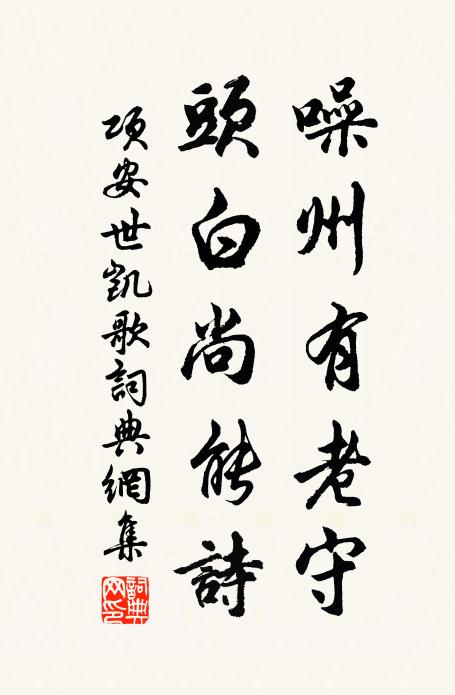 噪州有老守
頭白尚能詩
項安世凱歌詞典網集
詞典網印